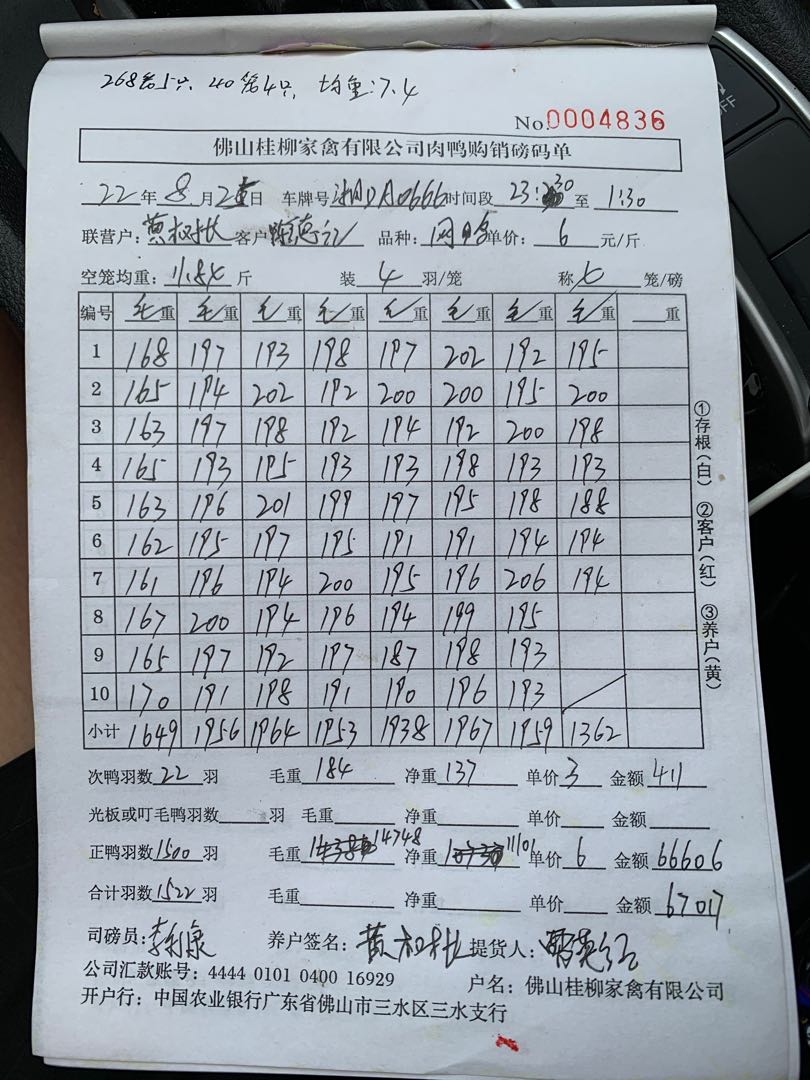 268笼5只、40笼4只、均重:7.4
No.0004836
佛山桂柳家禽有限公司肉鸭购销磅码单
22年8月2日 车牌号 A0666 时间段 23:30 至 1:30
联营户: 客户 品种: 单价: 6 元/斤
空笼均重: 11.84 斤 装 4 羽/笼 称 笼/磅
编号 毛重 毛重 毛重 毛重 毛重 毛重 毛重 毛重 重
1 168 197 193 198 197 202 192 195
2 165 194 202 192 200 200 195 200
3 163 197 198 192 194 192 200 198
4 165 193 195 193 193 198 193 193
5 163 196 201 199 197 195 198 188
6 162 195 197 195 191 191 194 194
7 161 196 194 200 195 196 206 194
8 167 200 194 196 194 199 195
9 165 197 192 197 187 198 193
10 170 191 198 191 190 196 193
小计 1649 1956 1964 1953 1938 1967 1959 1362
次鸭羽数 22 羽 毛重 184 净重 137 单价 3 金额 411
光板或叮毛鸭羽数 羽 毛重 净重 单价 金额
正鸭羽数 1500 羽 毛重 14748 净重 11101 单价 6 金额 66606
合计羽数 1522 羽 毛重 净重 单价 金额 67017
司磅员: 养户签名: 提货人:
公司汇款账号: 4444 0101 0400 16929 户名: 佛山桂柳家禽有限公司
开户行: 中国农业银行广东省佛山市三水区三水支行
①存根(白) ②客户(红) ③养户(黄)